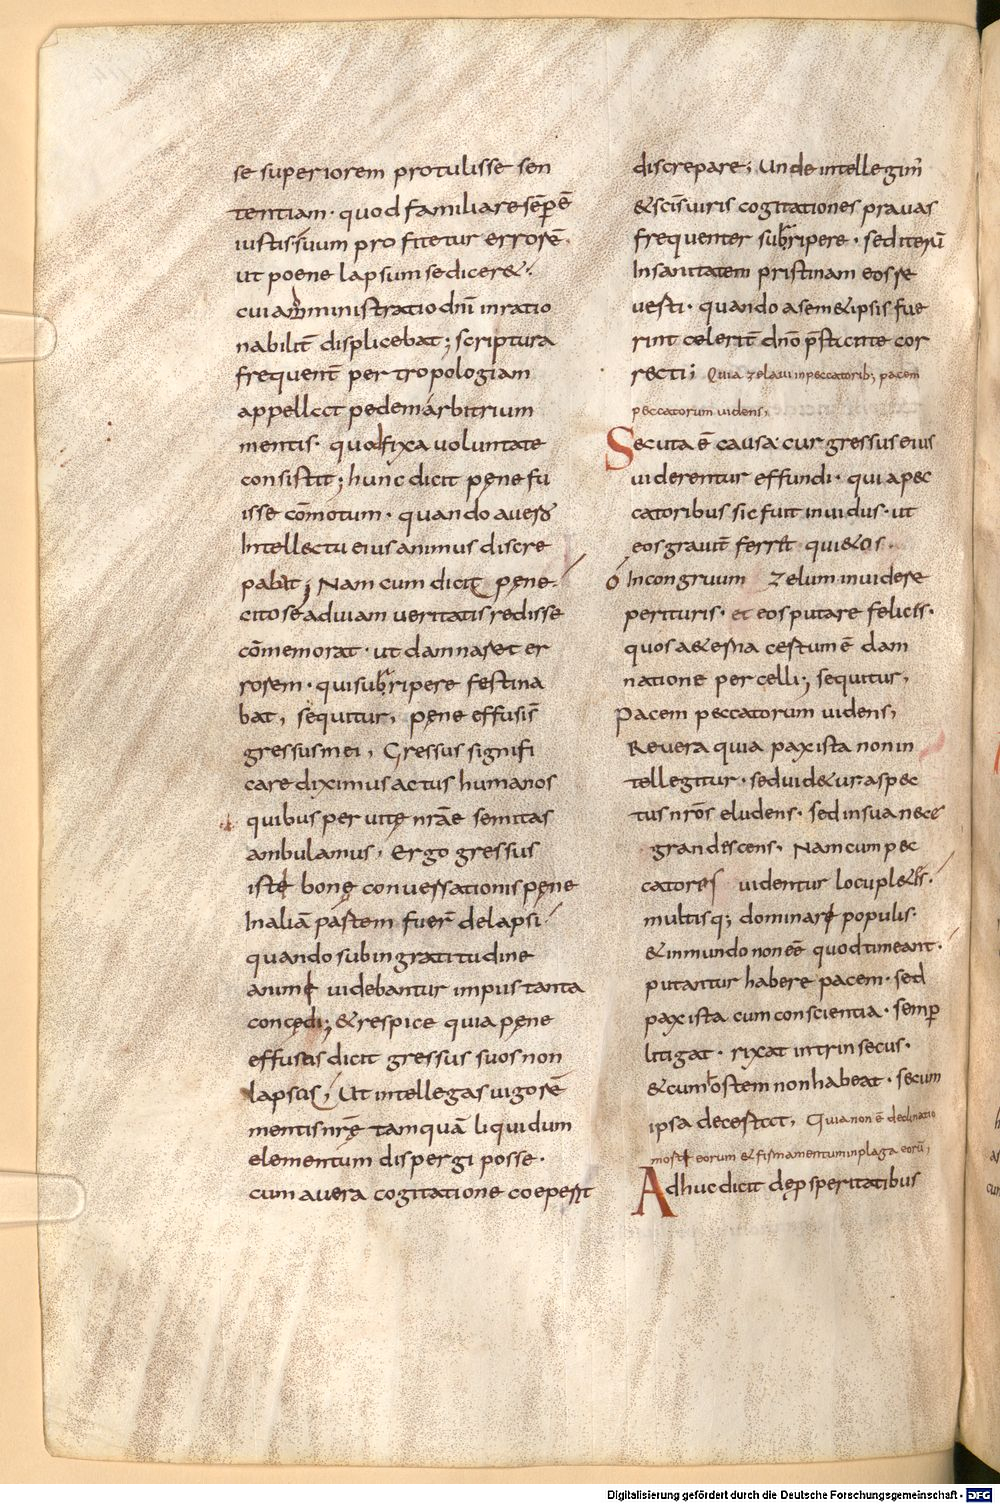 se superiorem protulisse sen
tentiam· quod familiare sēp ē
iustissimum profitetur errorē·
ut poene lapsum se diceret·
cui amministratio dn̄i inratio
nabilit̄ displicebat; scriptura
frequent̄ per tropologiam
appellat pedem arbitrium
mentis· quod fixa uoluntate
consistit; hunc dicit pęne fu
isse cōmotum· quando auerso
Intellectu eius animus discre
pabat; Nam cum dicit pęne·
cito se ad uiam ueritatis redisse
cōmemorat· ut damnaret er
rorem· qui subripere festina
bat, sequitur, pęne effusi s̄
gressus mei, Gressus signifi
care diximus actus humanos
quibus per uitę nrāe semitas
ambulamus, Ergo gressus
isti bonę conuersationis pęne
In aliā partem fuer̄ delapsi
quando sub ingratitudine
animę uidebantur impiis tanta
concędi; & respice quia pęne
effusos dicit gressus suos non
lapsos, Ut intellegas uigorē
mentis nr̄ę tamquā liquidum
elementum dispergi posse·
cum a uera cogitatione coeperit
discrepare; Unde intellegim̄
& scīs uiris cogitationes prauas
frequenter subripere· sed iterū
In sanitatem pristinam eos re
uerti· quando a sem&ipsis fue
rint celerit̄ dn̄o p̄stante cor
recti; Quia zelaui in peccatorib; pacem
peccatorum uidens,
Secuta ē causa cur gressus eius
uiderentur effundi· qui a pec
catoribus sic fuit inuidus· ut
eos grauit̄ ferret qui&os·
ó Incongruum zelum inuidere
perituris· et eos putare felices·
quos a&erna certum ē dam
natione percelli; sequitur,
Pacem peccatorum uidens,
Reuera quia pax ista non in
tellegitur· sed uid&ur aspec
tus nrōs eludens· sed in sua nece
grandescens, Nam cum pec
catores uidentur locupl&es·
multisq; dominari populis·
& in mundo non eē quod timeant·
putantur habere pacem· sed
pax ista cum conscientia· semp̄
litigat· rixat intrinsecus·
& cum hostem non habeat· secum
ipsa decertat, Quia non ē declinatio
morti eorum & firmamentum in plaga eorū,
Adhuc dicit dę p̄speritatibus
Digitalisierung gefördert durch die Deutsche Forschungsgemeinschaft - DFG